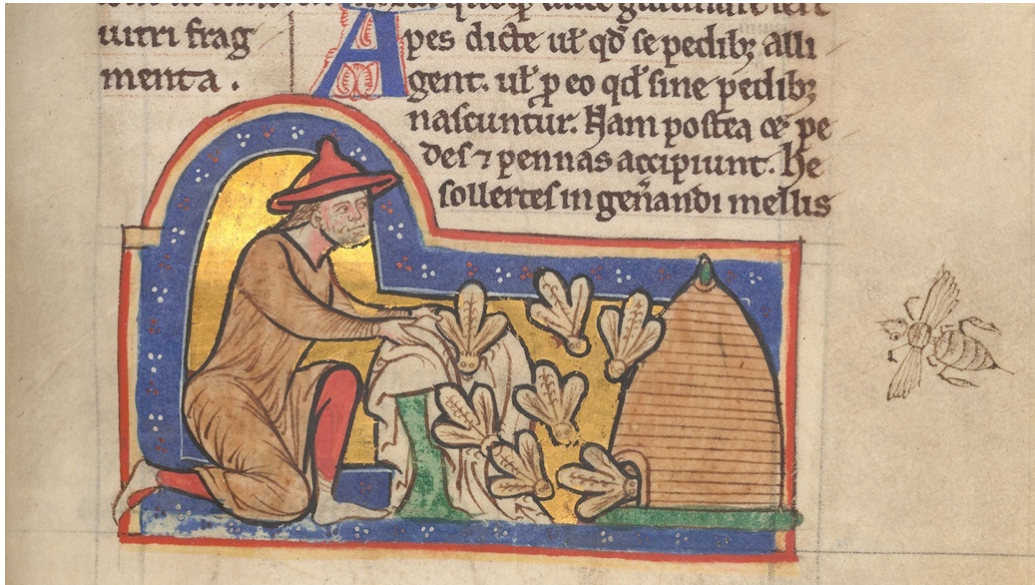 uitri frag
menta.
Apes dicte ul̃ qd̃ se pedibꝫ alli
gent. ul̃ p eo qd̃ sine pedibꝫ
nascuntur. Nam postea pe
des ⁊ pennas accipiunt. He
sollertes in geñandi mellis